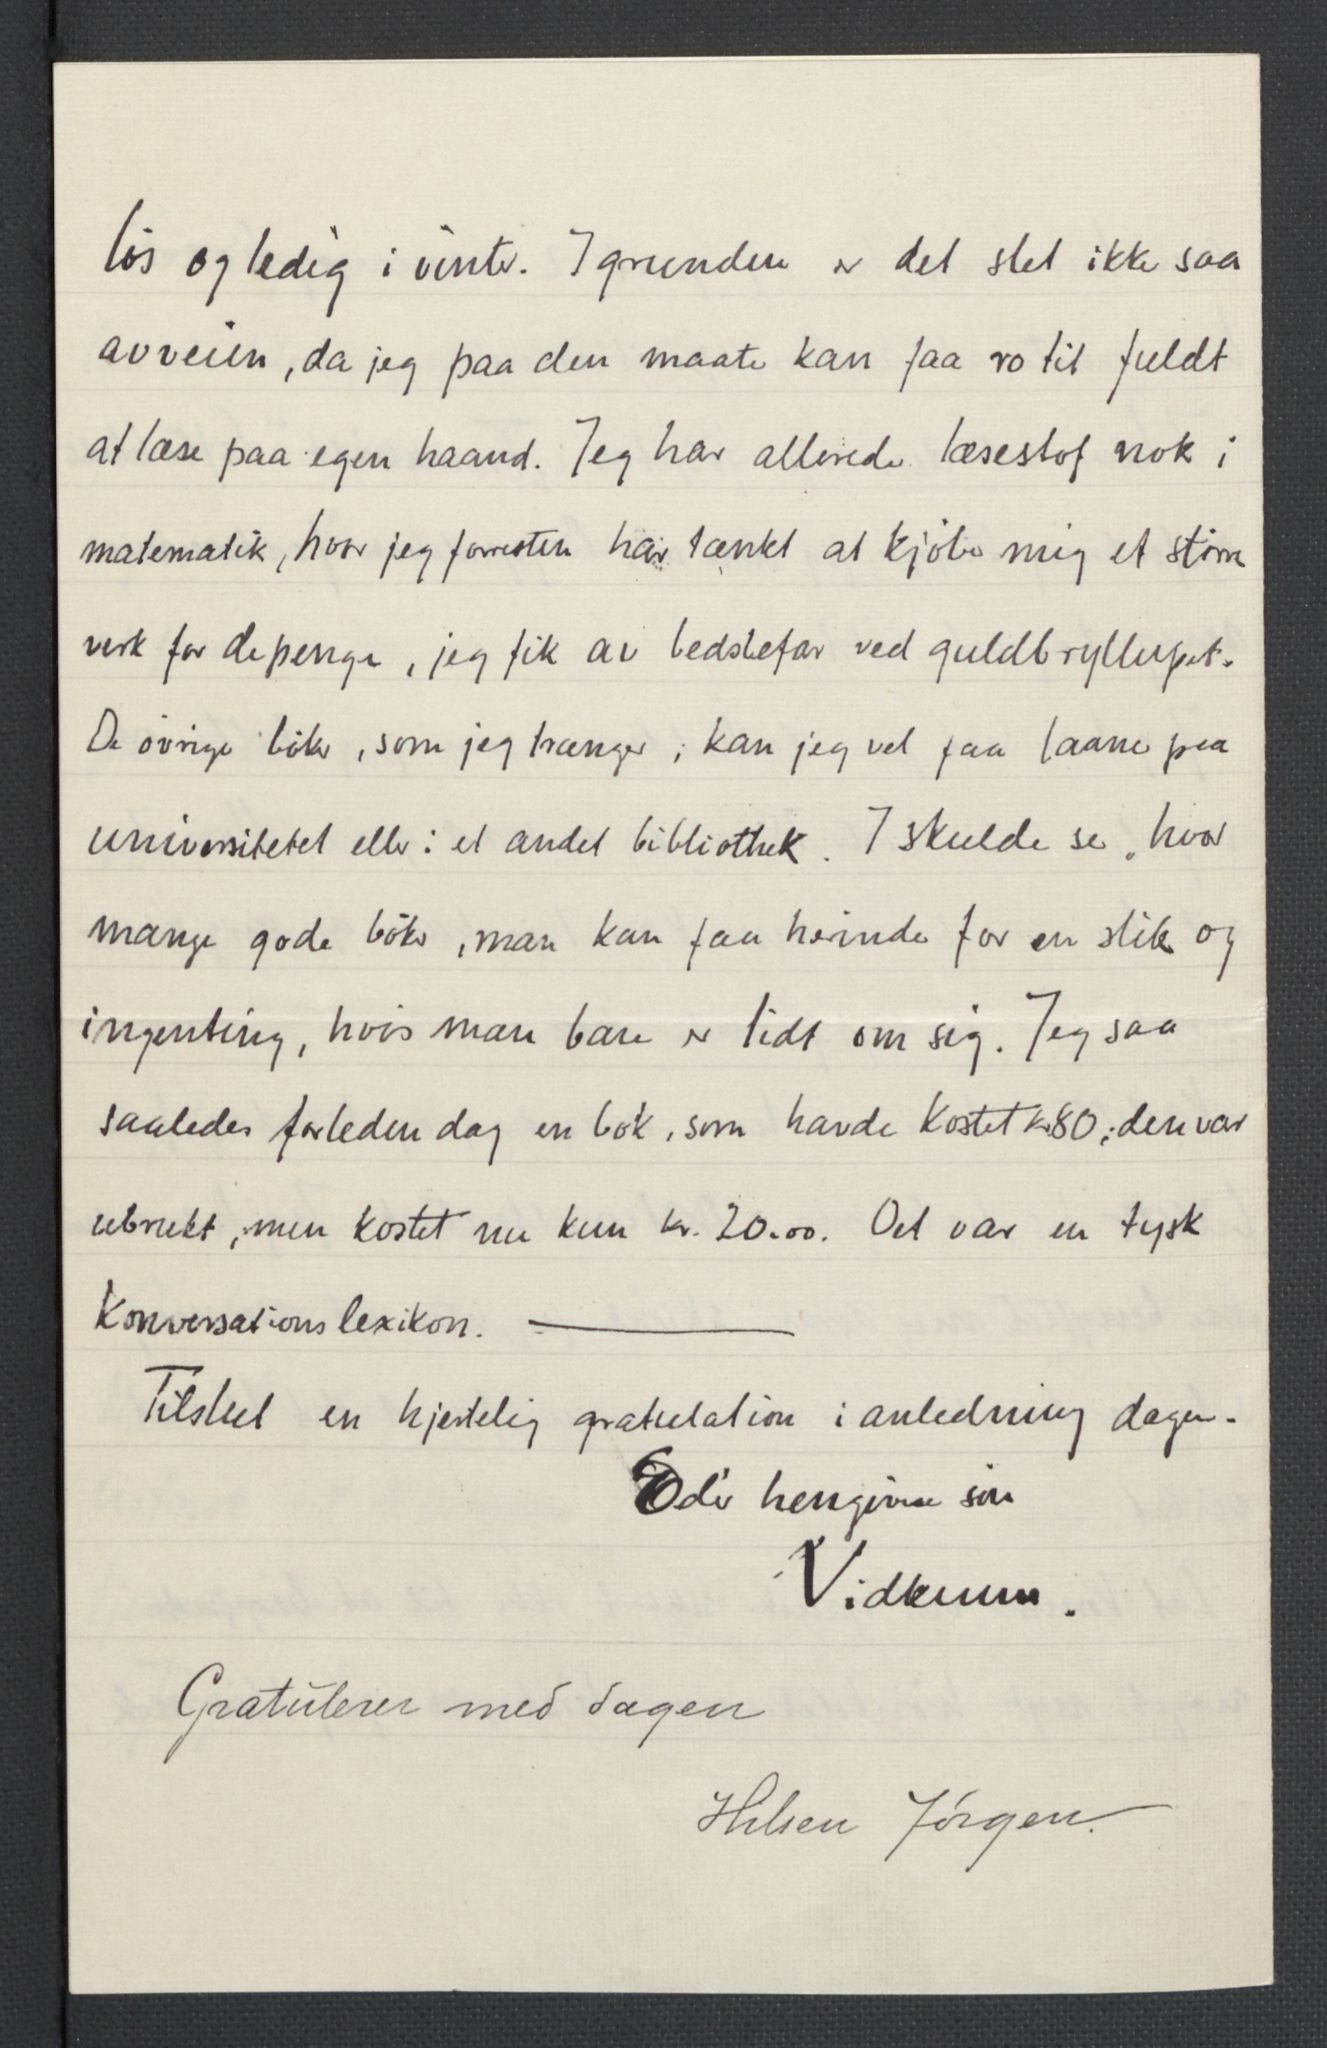 løs og ledig i vinter. I grunden er det slet ikke saa
avveien, da jeg paa den maate kan faa ro til fuldt
at læse paa egen haand. Jeg har allerede læsestof nok i
matematik, hvor jeg forresten har tænkt at kjöbe mig et större
verk for de penge, jeg fik av bedstefar ved guldbryllupet.
De övrige böker, som jeg trænger, kan jeg vel faa laane paa
universitetet eller i et andet bibliothek. I skulde se, hvor
mange gode böker, man kan faa herinde for en slik og
ingenting, hvis man bare er lidt om sig. Jeg saa
saaledes forleden dag en bok, som havde kostet kr 80; den var
ubrukt, men kostet nu kun kr. 20.00. Det var en tysk
Konversationslexikon. —
Tilslut en hjertelig gratulation i anledning dagen.
Eder hengivne sön
Vidkunn.
Gratulerer med dagen
Hilsen Jörgen.